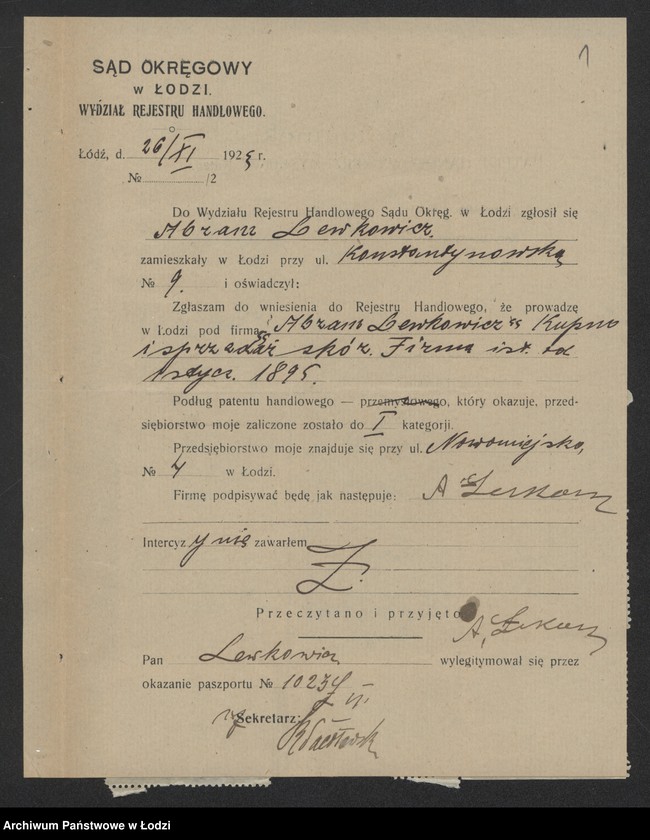 1
SĄD OKRĘGOWY
w ŁODZI.
WYDZIAŁ REJESTRU HANDLOWEGO.
Łódź, d. 26/XI 1925 r.
№ /2
Do Wydziału Rejestru Handlowego Sądu Okręg. w Łodzi zgłosił się
Abram Lewkowicz.
zamieszkały w Łodzi przy ul. Konstantynowską
№ 9. i oświadczył:
Zgłaszam do wniesienia do Rejestru Handlowego, że prowadzę
w Łodzi pod firmą „Abram Lewkowicz" Kupno
i sprzedaż skór. Firma ist. od
1 stycz. 1895.
Podług patentu handlowego — przemysłowego, który okazuje, przed-
siębiorstwo moje zaliczone zostało do I kategorji.
Przedsiębiorstwo moje znajduje się przy ul. Nowomiejska,
№ 4 w Łodzi.
Firmę podpisywać będę jak następuje: A
Intercyzy nie zawarłem
Przeczytano i przyjęto
A,
Pan Lewkowicz wylegitymował się przez
okazanie paszportu № 10234
Sekretarz:
Archiwum Państwowe w Łodzi